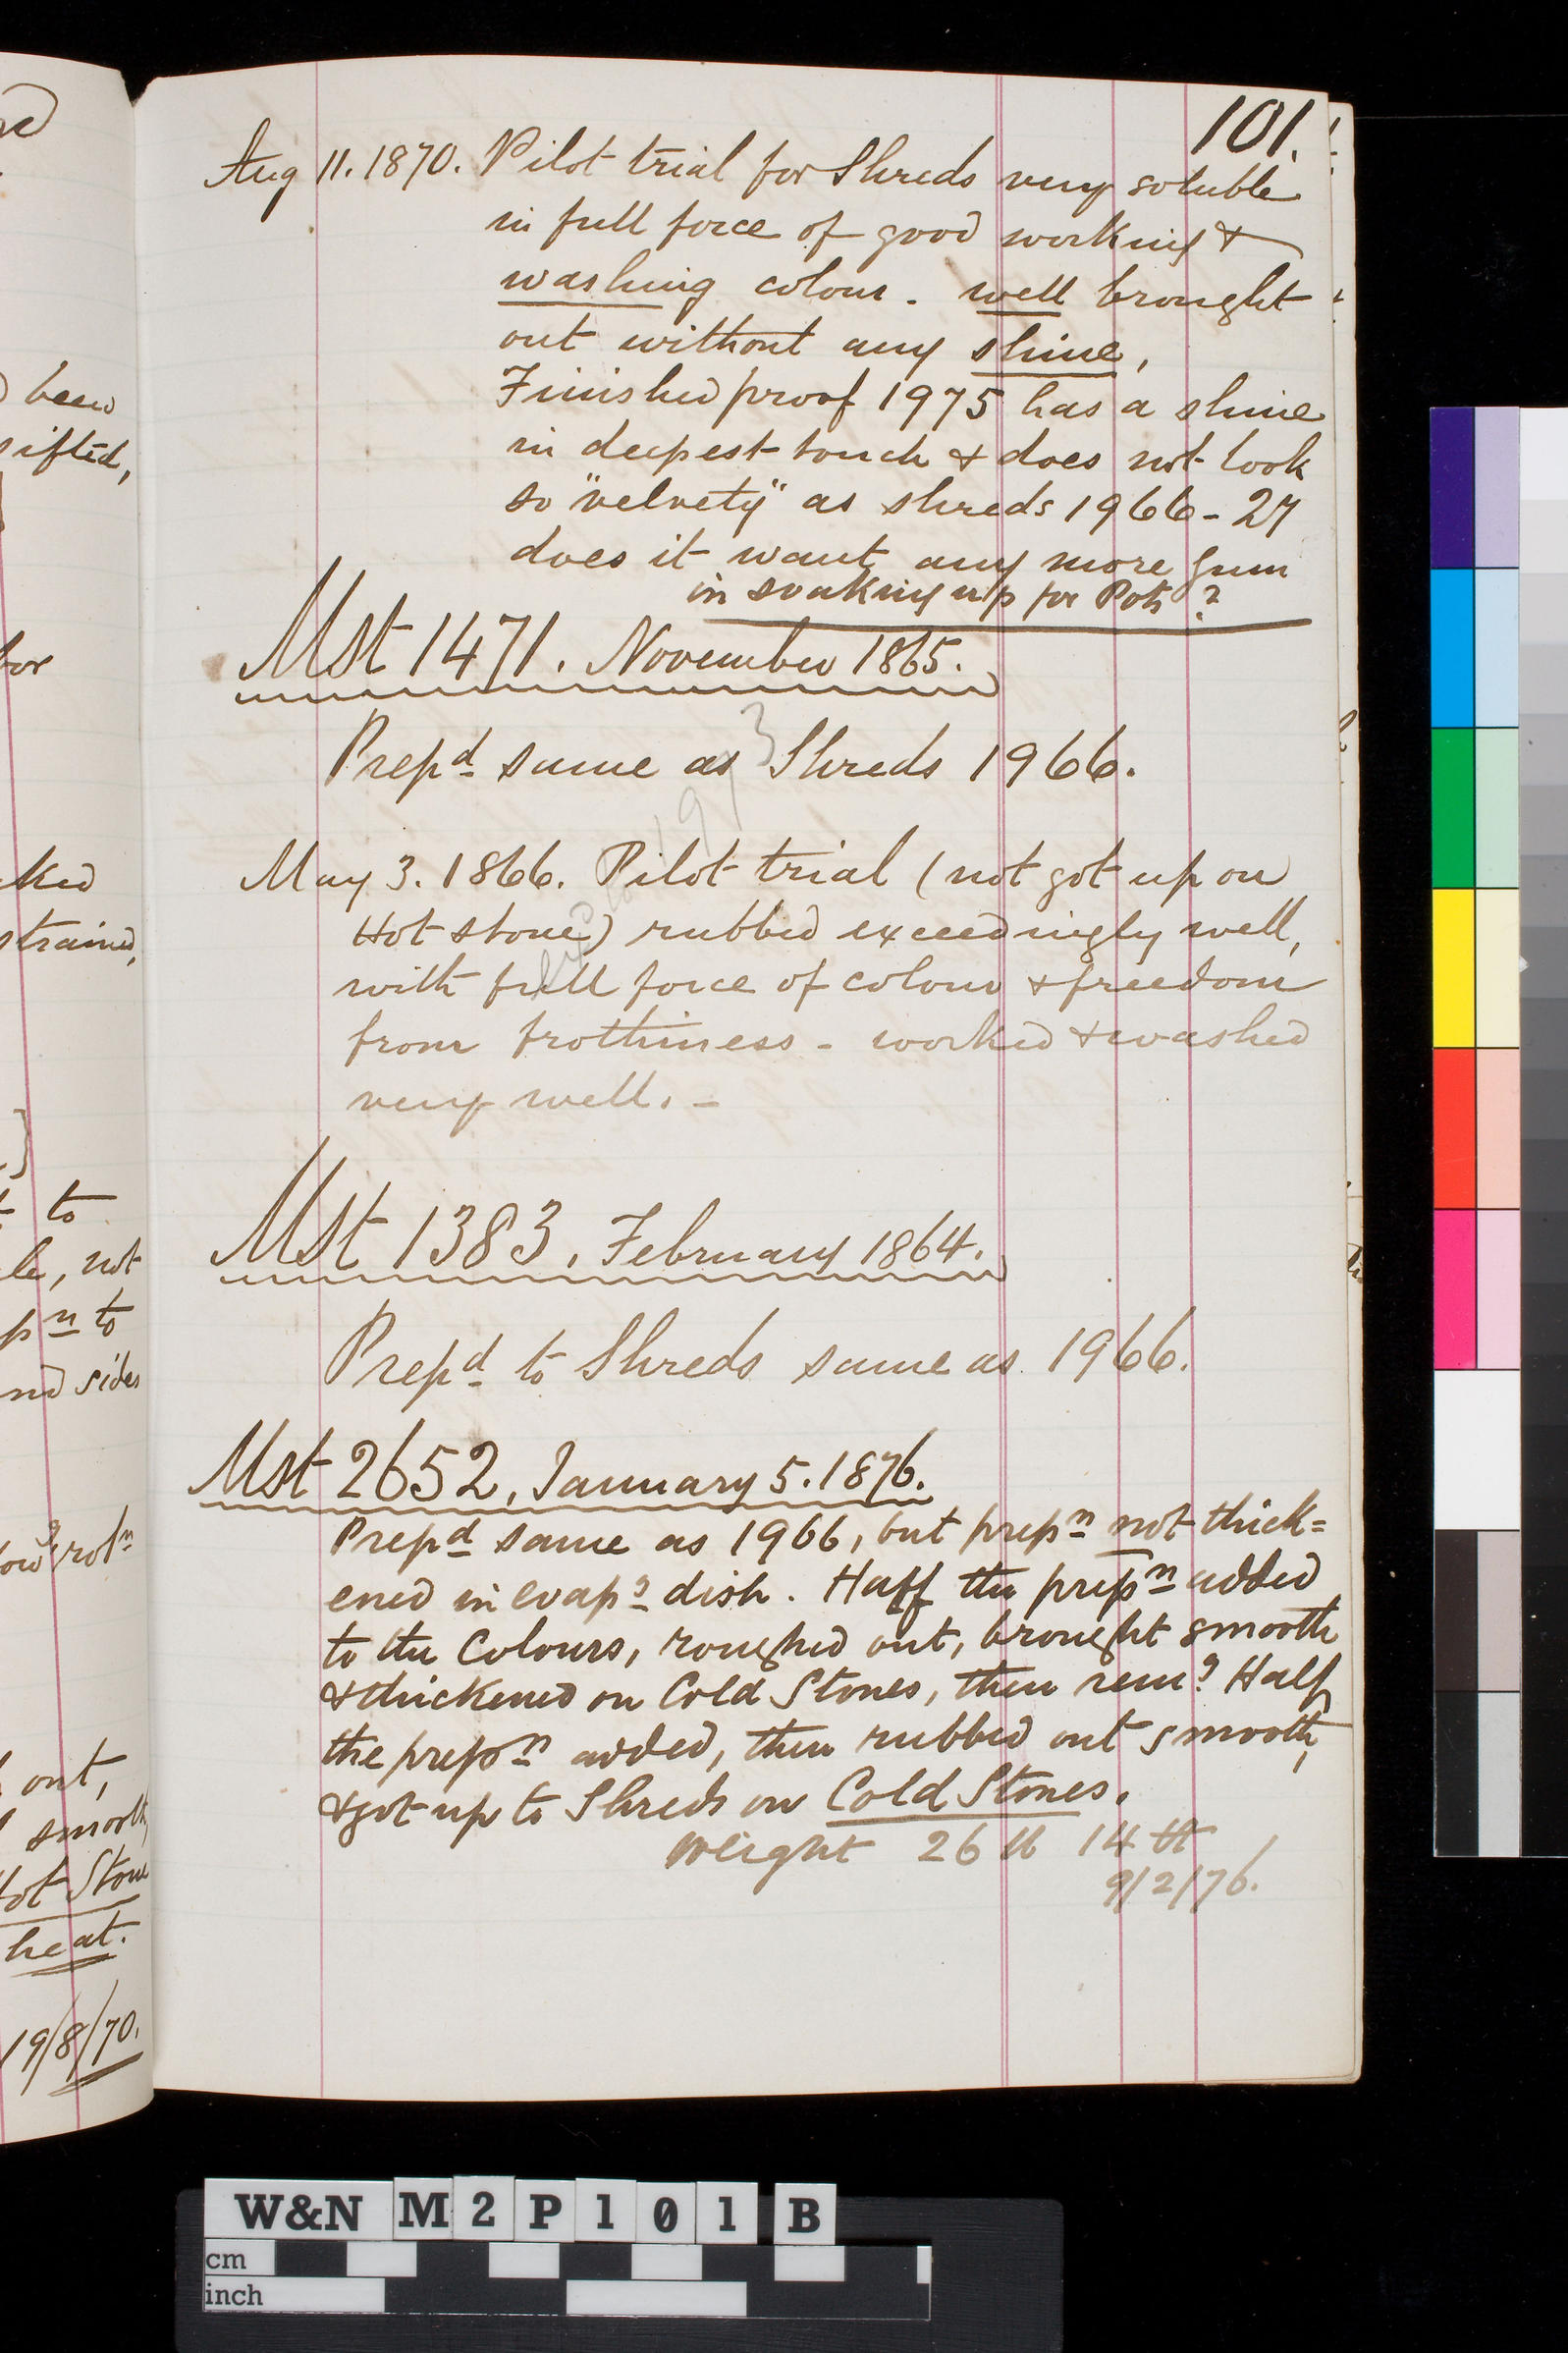 101.
Aug 11. 1870. Pilot trial for Shreds very soluble
in full force of good working &
washing colour. well brought
out without any shine,
Finished proof 1975 has a shine
in deepest touch & does not look
so "velvety" as shreds 1966 - 27
does it want any more gum
in soaking up for Pots?
Mst 1471. November 1865.
Prepd same as Shreds 1966.
May 3. 1866. Pilot trial (not got up on
Hot stone) rubbed exceedingly well,
with full force of colour & freedom
from frothiness - worked & washed
very well. -
Mst 1383, February 1864.
Prepd to Shreds same as 1966.
Mst 2652, January 5. 1876.
Prepd same as 1966, but prepn not thick=
ened in evapg dish. Half the prepn added
to the Colours, roughed out, brought smooth
& thickened on Cold Stones, then remg Half
the prepn added, then rubbed out smooth,
& got up to Shreds on Cold Stones.
Weight 26 lb 14
9/2/76.
been
sifted,
for
ked
strained,
to
le, not
pn to
nd sides
out,
smooth,
Hot Stone
heat.
19/8/70.
W&N M2P101B
cm
inch